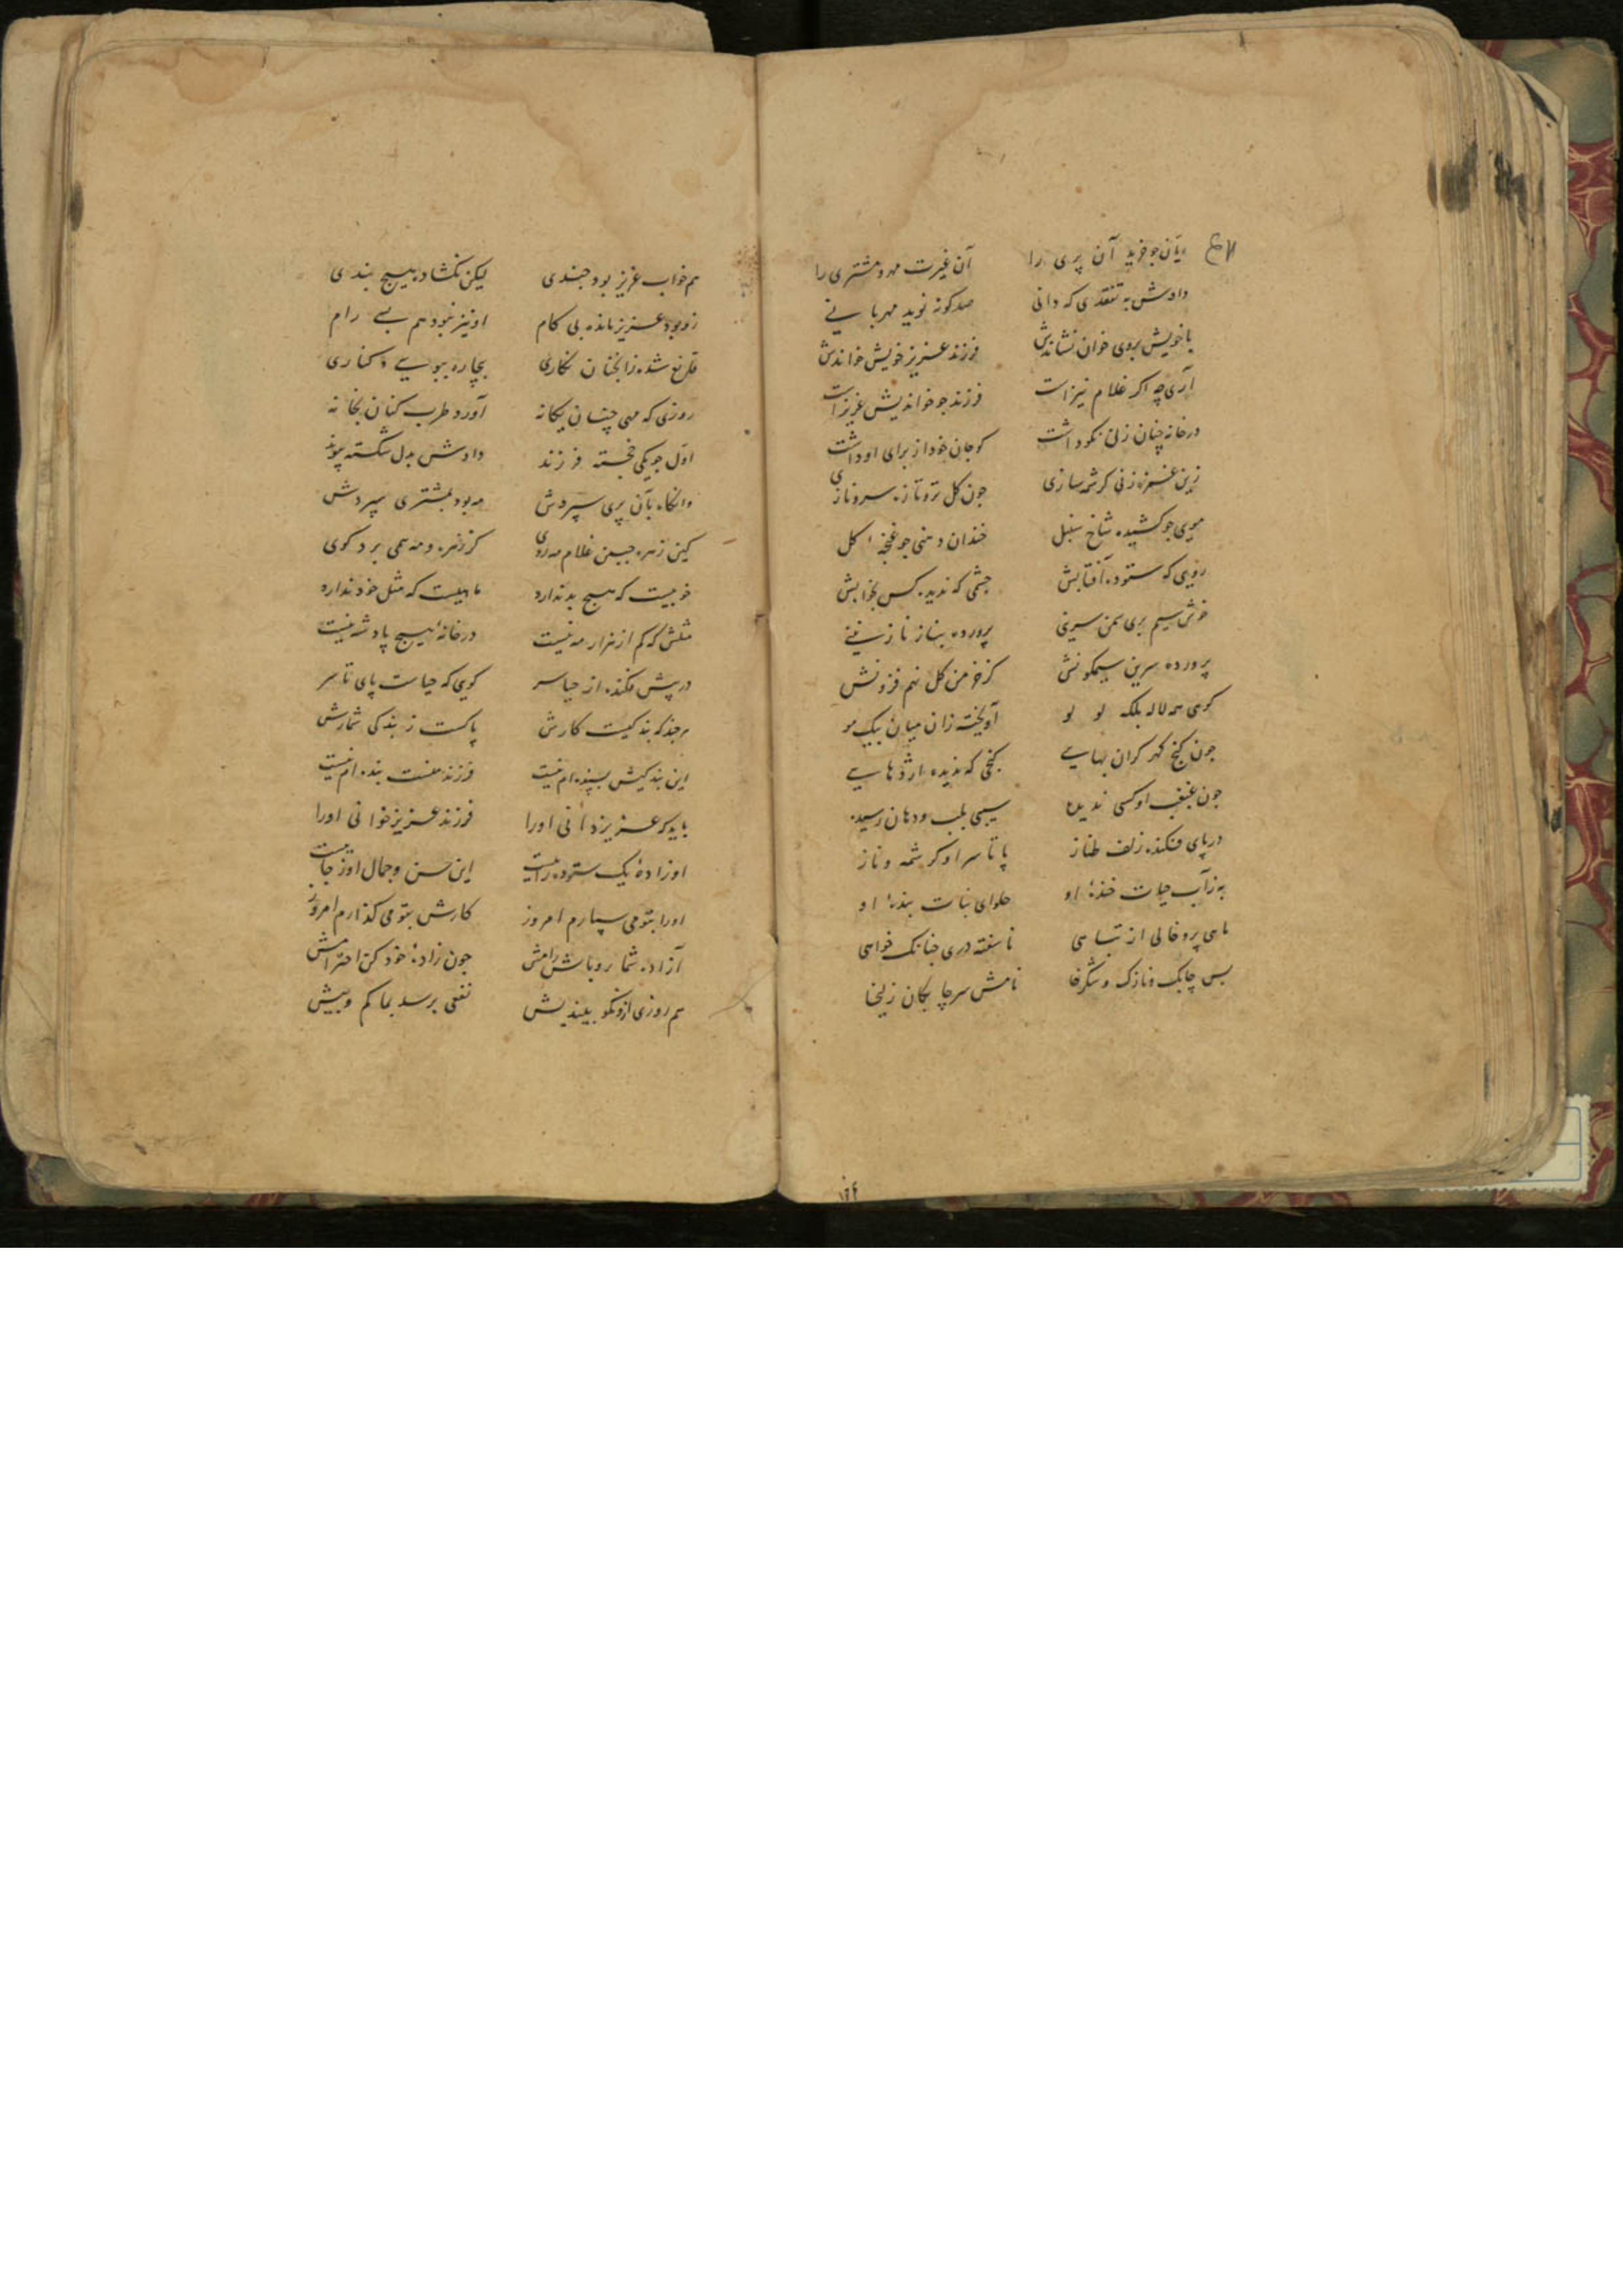 ریان جو خرید آن پری را آن غیرت مهر و مشتری را
دادش به تفقدی که دانی صد کونه نوید مهربانی
با خویش بروی خوان نشاندیش فرزند عزیز خویش خواندش
آری چه اکر غلام نیز است فرزند جو خواندیش عزیز است
در خانه چنان زنی نکو داشت کو جان خود از برای او داشت
زین زنی کرشمه سازی جون کل تر و تازه سرو نازی
موی جو کشیده شاخ سنبل خندان دهنی جو غنچه کل
رویی که ستوده آفتابش چشمی که ندیده کس بخوابش
خوش سیم بری سمن سرینی پرورده بناز نازنینی
پرورده سرین سیمکونش کز خرمن کل نهم فزونش
کوهی همه لاله بلکه لولو آویخته زان میان بیک مو
جون کنج کهر کران بهایی کنجی که ندیده اژدهایی
جون غبغب او کسی ندیده سیبی بلب و دهان رسیده
در پای فکنده زلف طناز پا تا سر او کرشمه و ناز
به ز آب حیات خنده او حلوای نبات بنده او
ماهی پر و خالی از تباهی ناسفته دری جنانک خواهی
بس چابک و نازک و شکرفا نامش سر چابکان زلیخا
هم خواب عزیز بود جندی لیکن نکشاد هیچ بندی
زو بود عزیز مانده بی کام او نیز نبود هم بسی رام
قانع شده زانجنان نکاری بیچاره ببوسی و کناری
روزی که مهی چنان یکانه آورد طرب کنان بخانه
اول جو یکی خجسته فرزند دادش بدل شکسته پیوند
وانکاه بآن پری سپردش مه بود بمشتری سپردش
کین زهره جبین غلام مه روی کز زهره و مه همی برد کوی
خوبیست که هیچ بد ندارد ماهیست که مثل خود ندارد
مثلش که کم از هزار مه نیست در خانه هیچ پادشه نیست
در پیش فکنده از حیا سر کویی که حیاست پای تا سر
هر جند که بندکیست کارش پاکست ز بندکی شمارش
این بندکیش پسندم نیست فرزند منست بنده ام نیست
باید که عزیز دانی او را فرزند عزیز خوانی او را
او زاده یک ستوده رائیست این حسن و جمال او ز جائیست
او را بتو می سپارم امروز کارش بتو می کذارم امروز
آزاده شمار و باش رامش جون زاده خود کن احترامش
هم روزی ازو نکو بیندیش نفعی برسد بما کم و بیش
۱۲۴